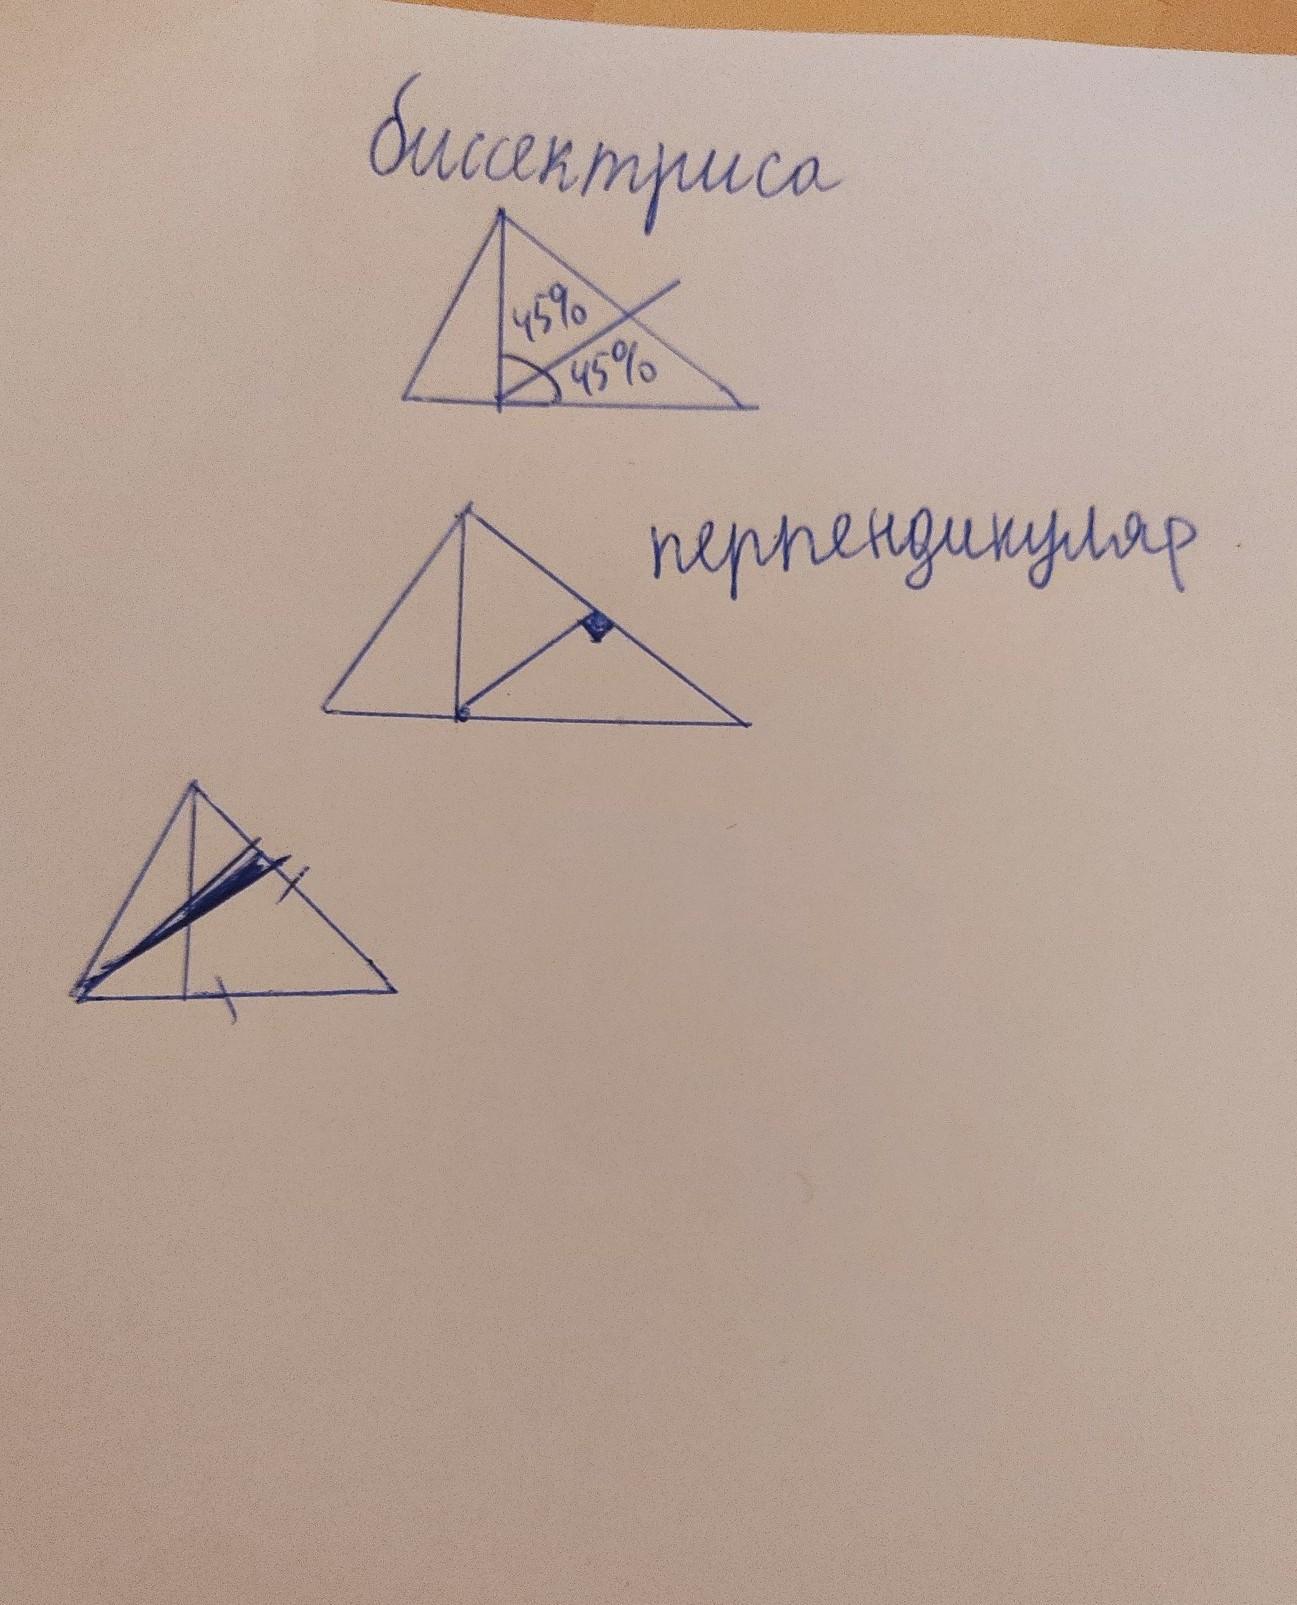 биссектриса
45%
45%
перпендикуляр